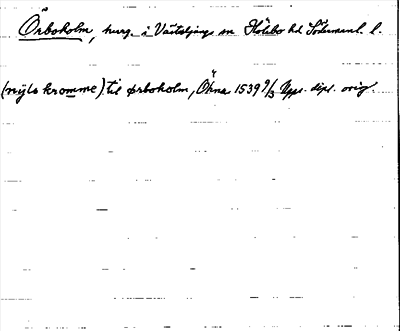 Örboholm, herrg. i Västeljungs sn Hölebo hd Södermanl. l.
(nijls kromme) til ørboholm, Ökna 1539 9/3 Upps. dipl. orig.